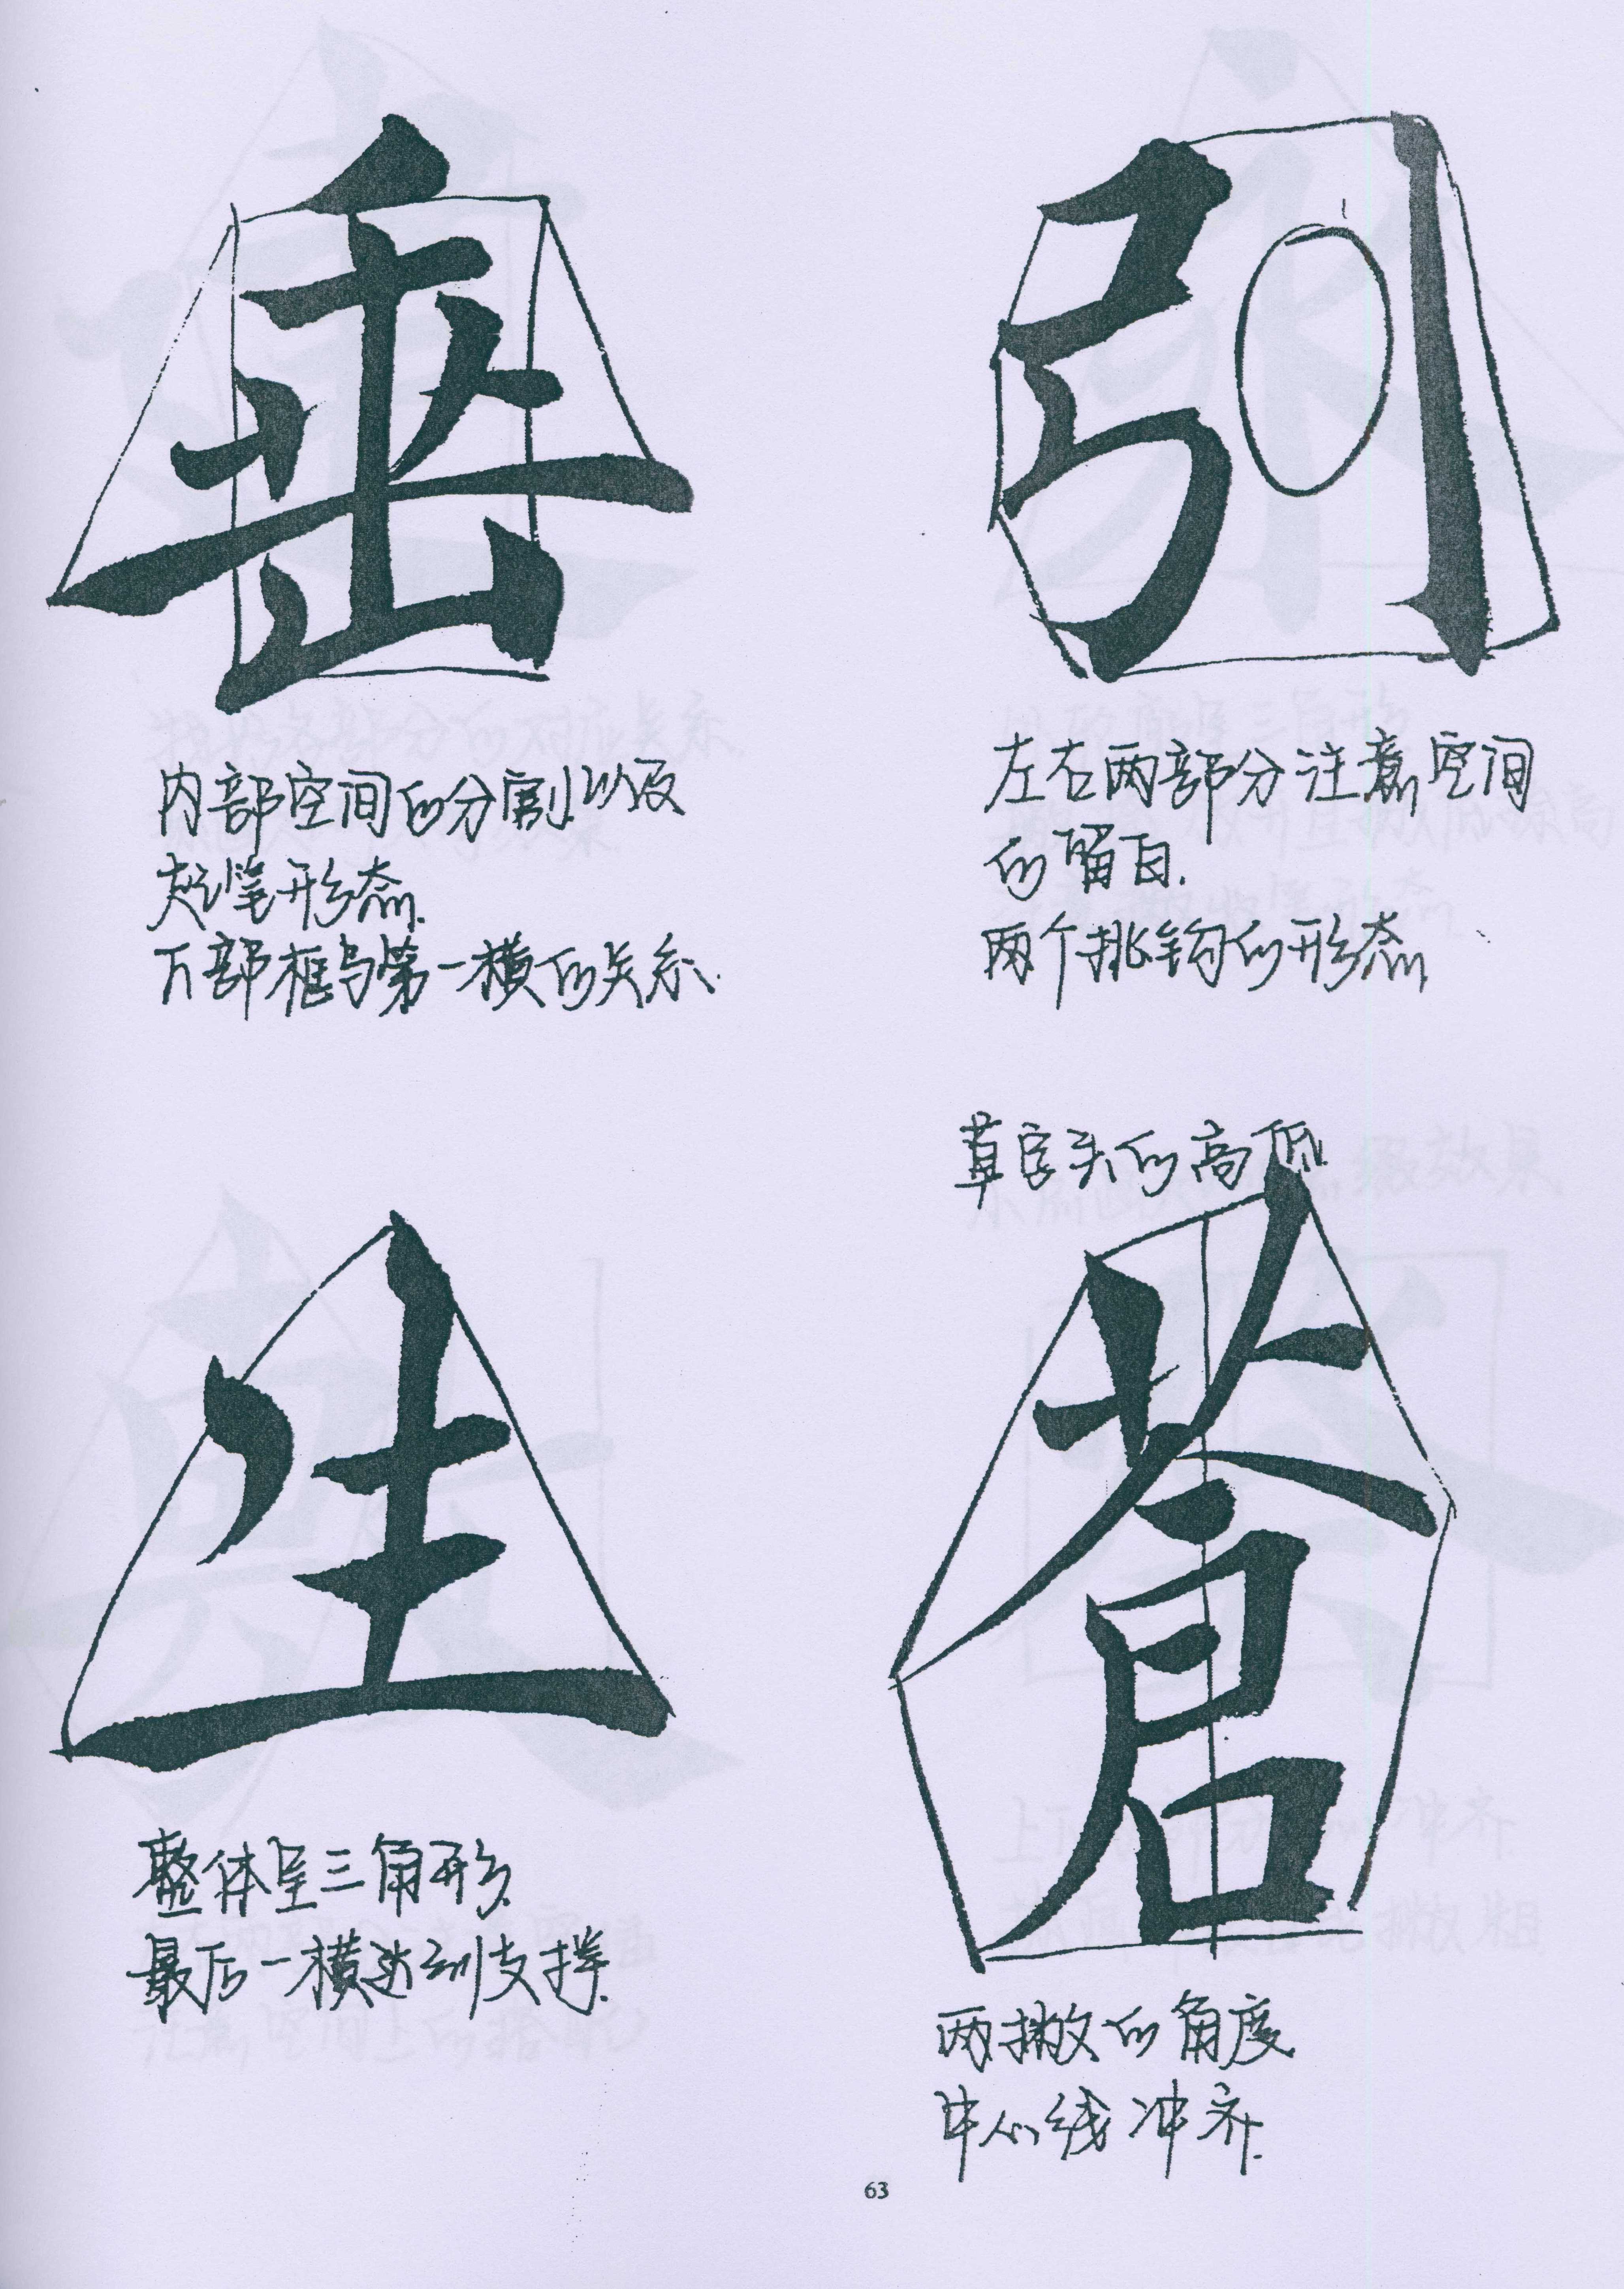 垂
内部空间的分割以及
起笔形态.
下部框与第一横的关系.
引
左右两部分注意空间
的留白.
两个挑钩的形态
生
整体呈三角形.
最后一横达到支撑.
草字头的高低
苍
两撇的角度
中心线冲齐.
63